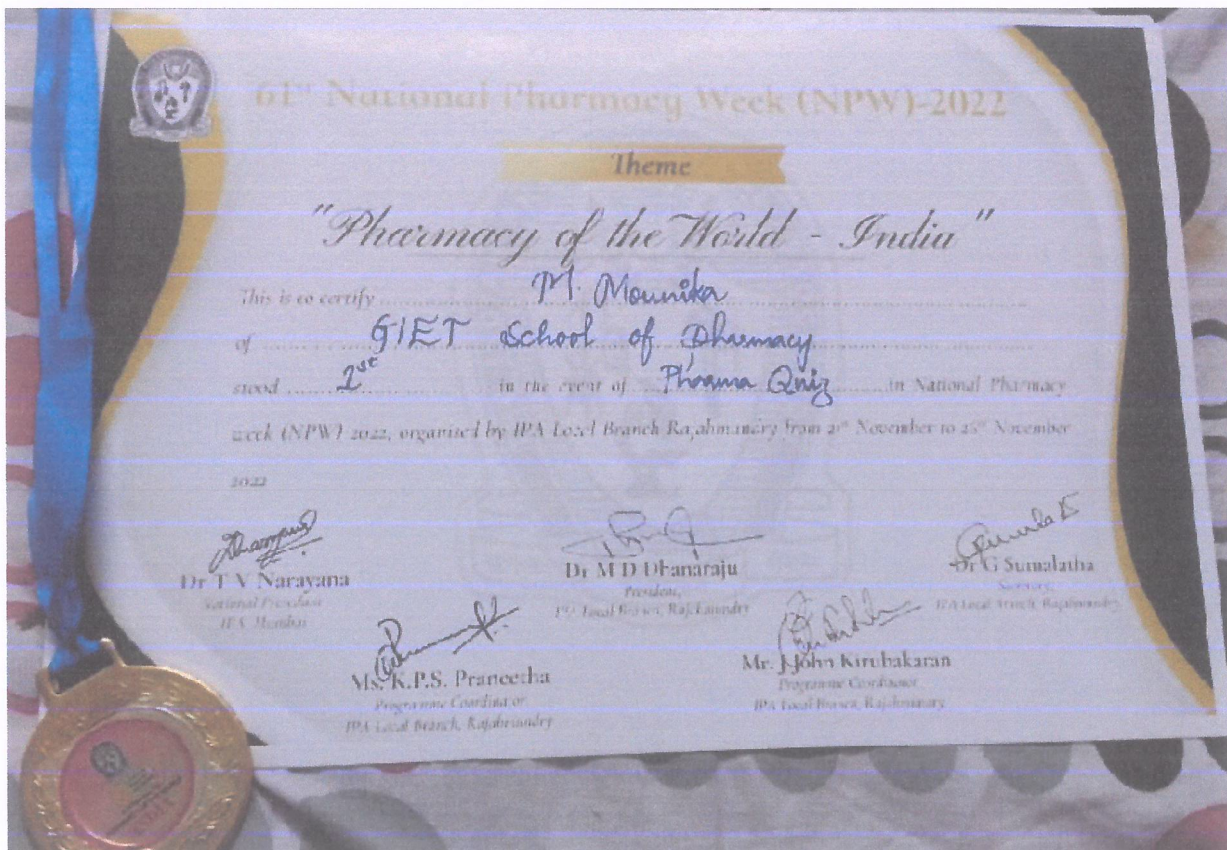 61st National Pharmacy Week (NPW)-2022
Theme
"Pharmacy of the World - India"
This is to certify M. Mounika
of GIET School of Pharmacy
stood 1st in the event of Pharma Quiz in National Pharmacy
week (NPW) 2022, organised by IPA Local Branch Rajahmundry from 21st November to November
2022
Dr T V Narayana
National President
IPA, Mumbai
Dr M D Dhanaraju
President,
IPA Local Branch, Rajahmundry
Dr G Sumalatha
Secretary,
IPA Local Branch, Rajahmundry
Ms. K.P.S. Praneetha
Programme Coordinator
IPA Local Branch, Rajahmundry
Mr. J.John Kirubakaran
Programme Coordinator
IPA Local Branch, Rajahmundry